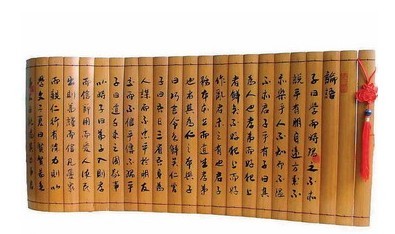 論語
子曰學而時習之不亦
說乎有朋自遠方來不
亦樂乎人不知而不慍
不亦君子乎有子曰其
為人也孝弟而好犯上
者鮮矣不好犯上而好
作亂者未之有也君子
務本本立而道生孝弟
也者其為仁之本與子
曰巧言令色鮮矣仁曾
子曰吾日三省吾身為
人謀而不忠乎與朋友
交而不信乎傳不習乎
子曰道千乘之國敬事
而信節用而愛人使民
以時子曰弟子入則孝
出則弟謹而信凡愛眾
而親仁行有餘力則以
學文子夏曰賢賢易色